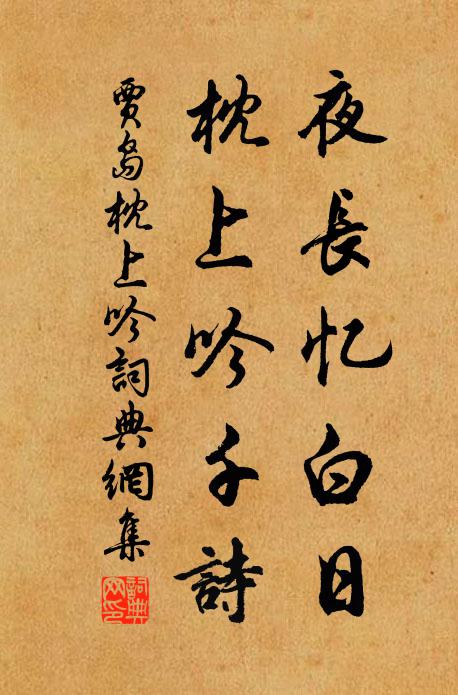 夜長忆白日
枕上吟千詩
賈島枕上吟詞典網集
詞典網印